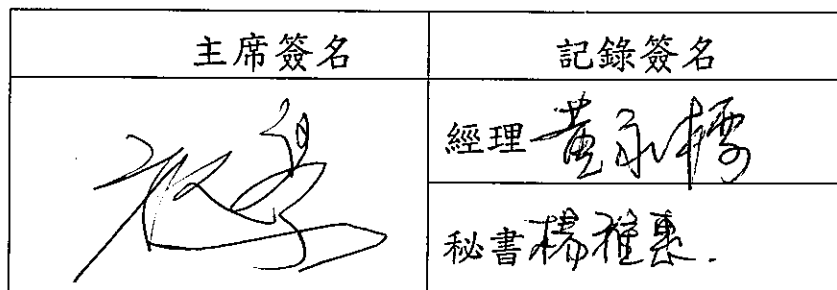 主席簽名
記錄簽名
經理 黃永
秘書 楊雅惠.